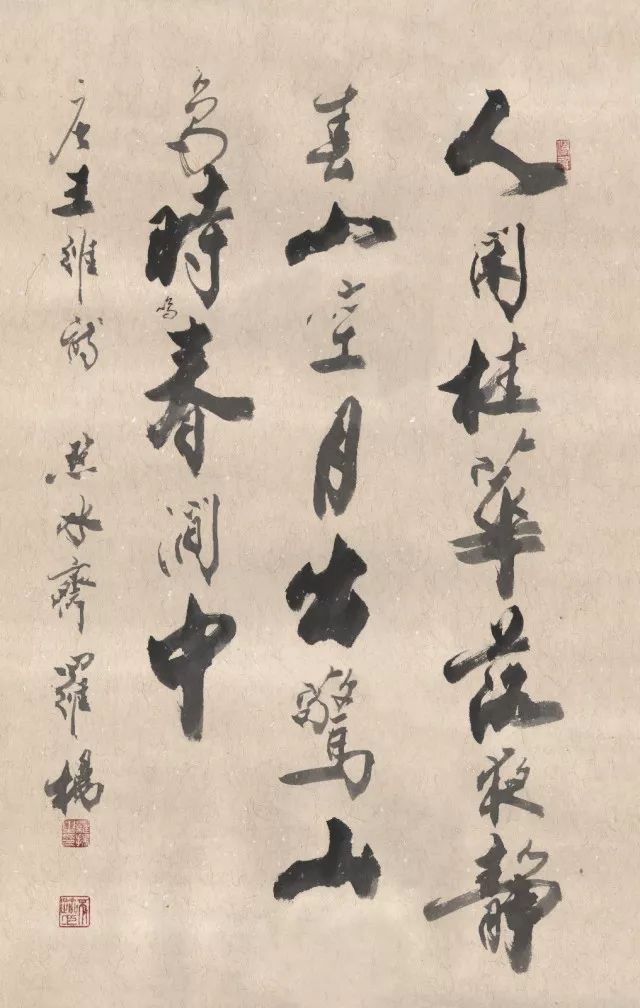 人閑桂華落夜靜
春山空月出驚山
鳥時鳴春澗中
唐王維詩 水齋羅楊